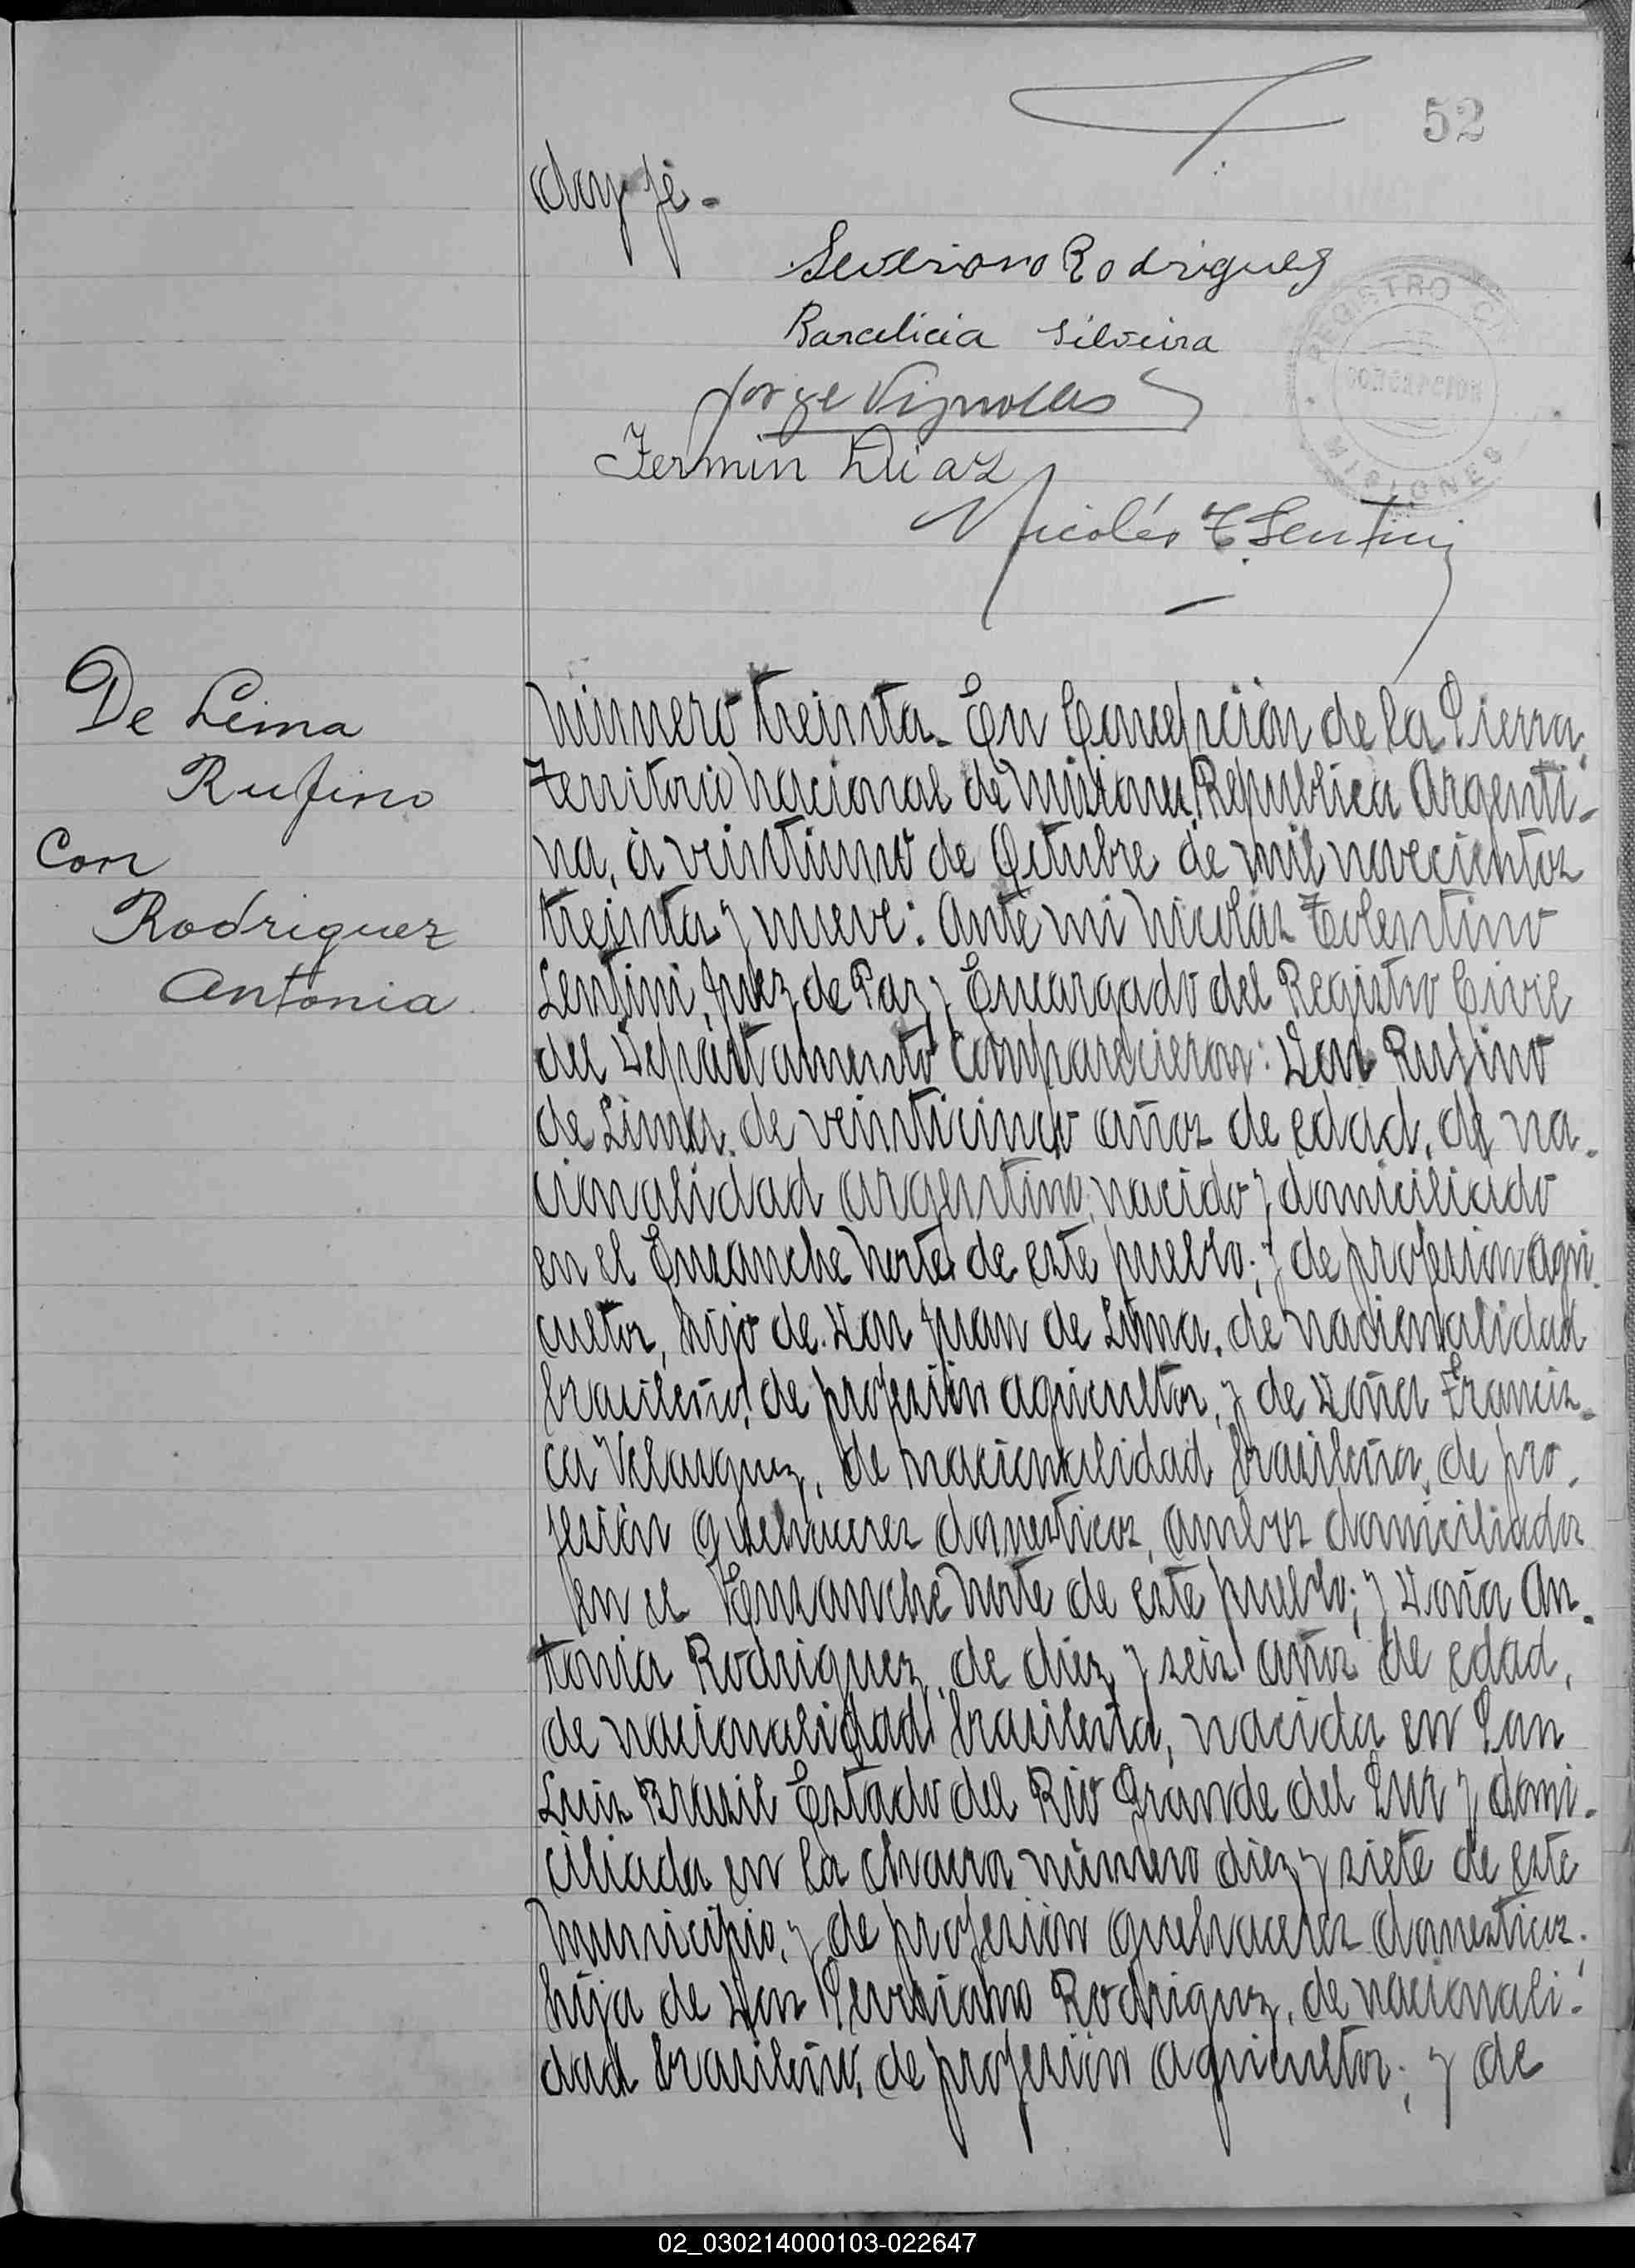 52
doy fé.-
Severiano Rodrigues
Barcelicia Silveira
Jorge Vignolles
Fermin Diaz
REGISTRO CIVIL
CONCEPCION
MISIONES
Nicolás T. Lentini
De Lima
Rufino
Con
Rodriguez
Antonia
Número treinta. En Concepción de la Sierra,
Territorio Nacional de Misiones, Republica Argenti-
na, á veintiuno de Octubre de mil novecientos
treinta y nueve: Ante mi Nicolás Tolentino
Lentini, Juez de Paz y Encargado del Registro Civil
del Departamento comparecieron: Don Rufino
de Lima, de veinticinco años de edad, de na-
cionalidad argentino, nacido y domiciliado
en el Ensanche Norte de este pueblo; y de profesión agri-
cultor, hijo de Don Juan de Lima, de nacionalidad
brasileño, de profesión agricultor, y de Doña Francis-
ca Velasquez, de nacionalidad brasileña, de pro-
fesión quehaceres domesticos, ambos domiciliados
en el Ensanche Norte de este pueblo; y Doña An-
tonia Rodriguez, de diez y seis años de edad,
de nacionalidad brasileña, nacida en San
Luis Brasil Estado del Rio Grande del Sur y domi-
ciliada en la chacra número diez y siete de este
Municipio, y de profesión quehaceres domesticos.
hija de Don Severiano Rodriguez, de nacionali-
dad brasileño, de profesión agricultor; y de
02_030214000103-022647